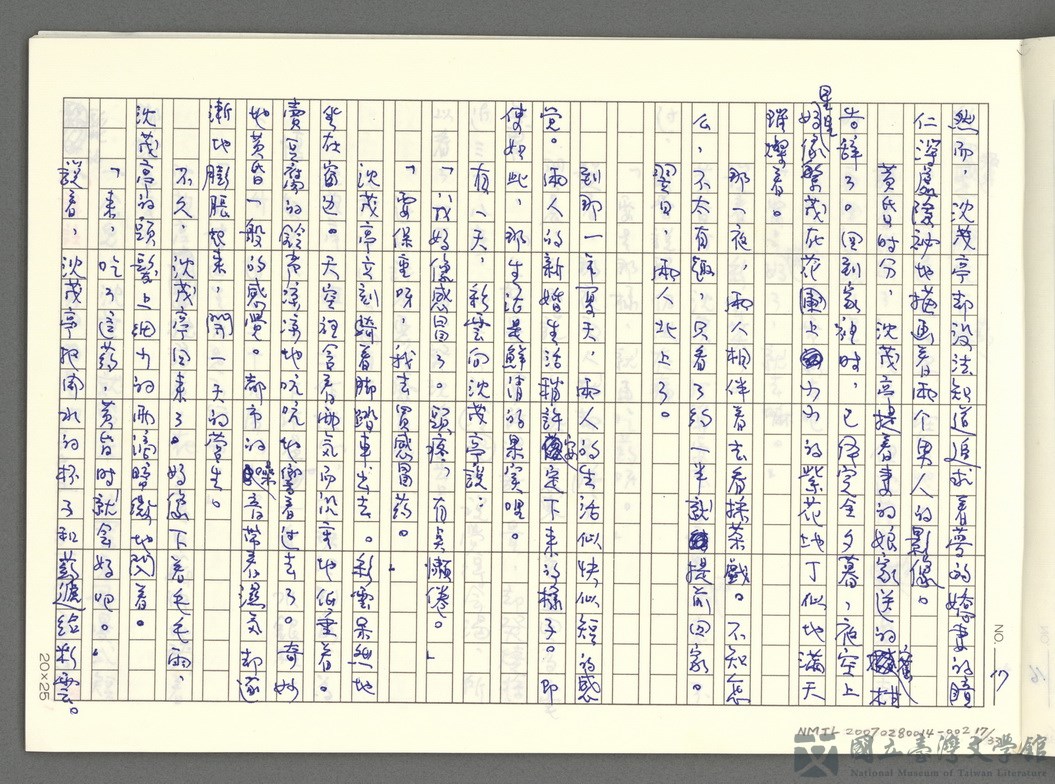 然而，沈茂亭却没法知道追求着夢的嬌妻的瞳
仁深處隱祕地描画着两个男人的影像。
黄昏时分，沈茂亭提着妻的娘家送的蜜柑
告辞了。回到家裡时，已經完全夕暮，夜空上
星星好像繁茂在花園上的小小的紫花地丁似地满天
璀燦着。
那一夜，兩人相伴着去看採茶戲。不知怎
么，不太有趣，只看了約一半就提前回家。
翌日，兩人北上了。
到那一年夏天，兩人的生活似快似短的感
觉。兩人的新婚生活稍許安定下来的樣子。即
使如此，那生活是鮮清的果实哩。
有一天，彩雲向沈茂亭說：
「我好像感冒了。頭疼，有臭懒倦。」
「要保重呀，我去買感冒药。」
沈茂亭立刻騎着脚踏車出去。彩雲呆然地
坐在窗边。天空裡含着雨気而沉重地低垂着。
賣豆腐的鈴声凉凉地吭吭地響着过去了。奇妙
地黄昏一般的感覺。都市的噪音带着濕気却逐
漸地膨脹起来，開一天的营生。
不久，沈茂亭回来了。好像下着毛毛雨，
沈茂亭的頭髮上细小的雨滴暗微地閃着。
「来，吃了這药，黄昏时就会好吧。」
說着，沈茂亭把開水的杯子和药遞给彩雲。
NO. 17
20×25
NMTL 20070280014-002 17/33
國立臺灣文學館
National Museum of Taiwan Literature